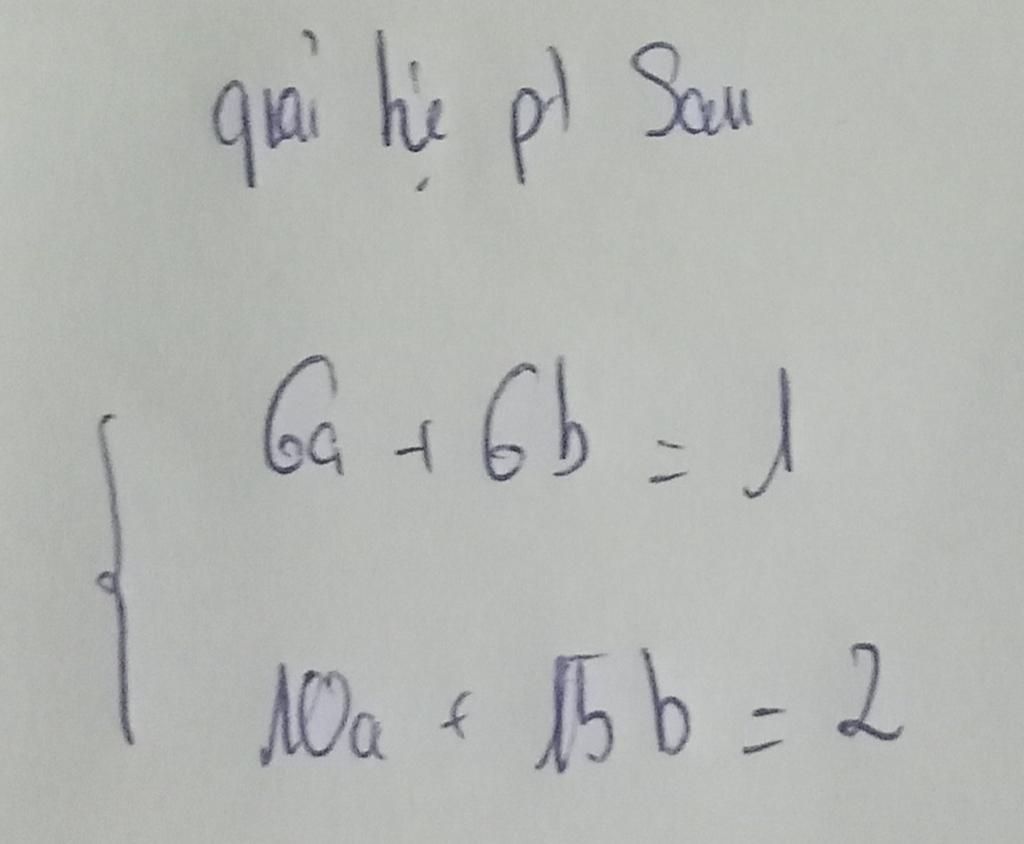 giải hệ pt sau
6a + 6b = 1
10a + 15b = 2